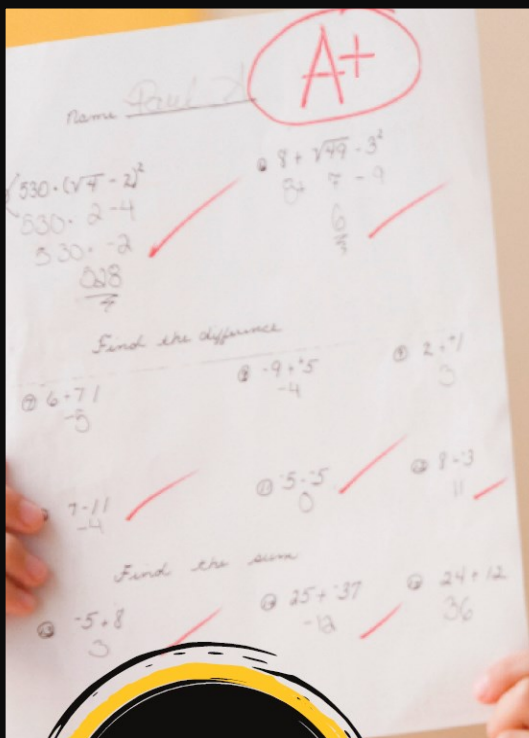 A+
Name Paul
530 · (√4 - 2)²
530 · 2 - 4
530 · -2
528
8 + √49 - 3²
8 + 7 - 9
6
Find the difference
⑦ 6 + 71
-5
⑧ -9 + +5
-4
⑨ 2 + +1
3
7 - 11
-4
⑪ -5 - -5
0
⑫ 8 - -3
11
Find the sum
⑬ -5 + 8
3
⑭ 25 + -37
-12
⑮ 24 + 12
36